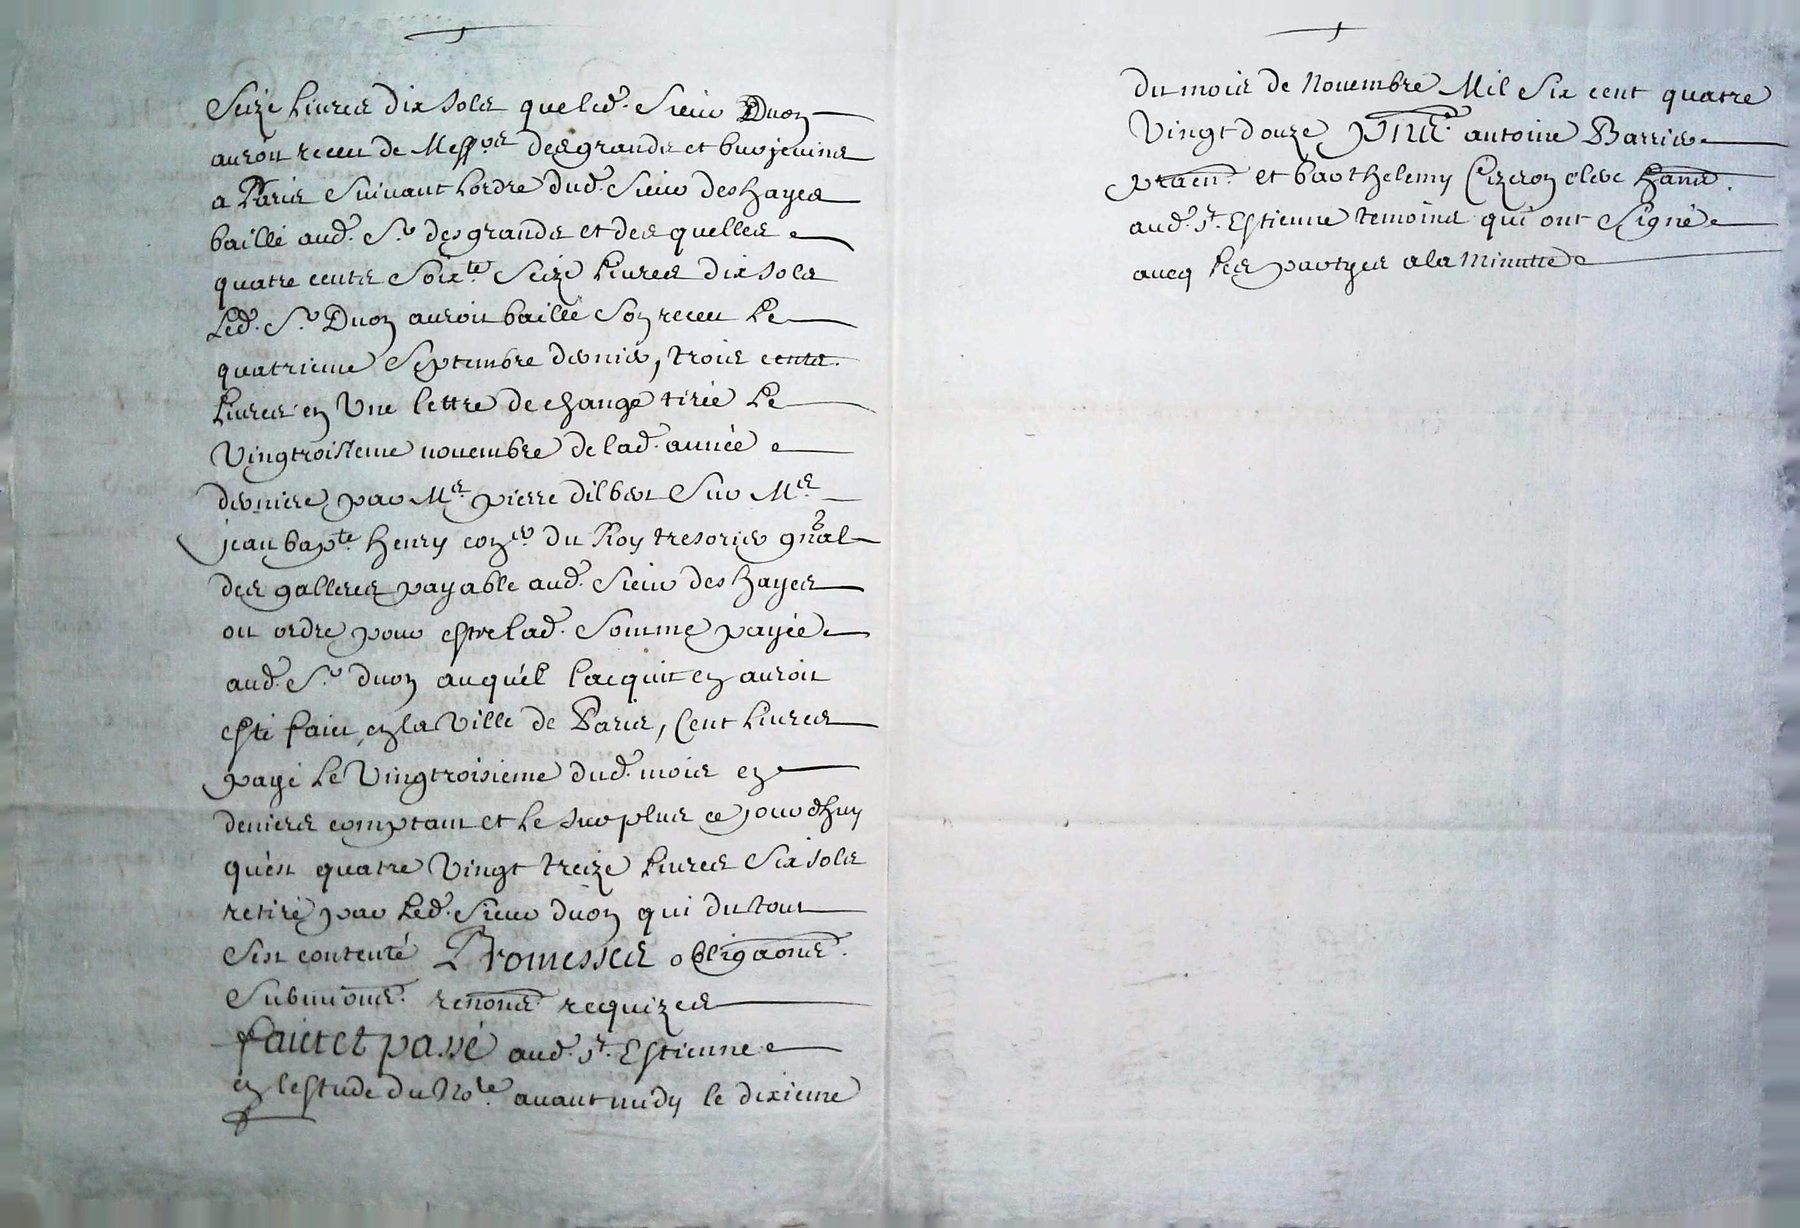 Seize livres dix sols que led. Sieur Duon
auroit receu de Mess.rs desgrands et burjevins
a Paris suivant l'ordre dud. Sieur deshayes
baillé aud. S.r desgrands et des quelles
quatre cents soix.te seize livres dix sols
Led. S.r Duon auroit baillé son receu le
quatrieme Septembre dernier, trois cents
livres en une lettre de change tirée le
vingtroisieme novembre de lad. année
derniere par M.e pierre dilbert sur M.e
jean bap.te henry con.er du Roy tresorier gnãl
des galleres payable aud. Sieur deshayes
ou ordre pour estre lad. somme payée
aud. S.r duon auquél l'acquit en auroit
esté faict en la ville de Paris, Cent livres
payé le vingtroisieme dud. mois en
deniers comptant et le surplus ce jourdhuy
qu'est quatre vingt treize livres six sols
retiré par led. Sieur duon qui du tout
s'est contenté Promesses obligaons.
submions. renons. requizes
faict et passé aud. S.t Estienne
en l'estude du No.re avant midy le dixieme
du mois de Novembre Mil six cent quatre
vingt douze pnts. antoine Barrier
praen. et barthelemy Cizeron eleve hans.
aud. S.t Estienne temoins qui ont signé
aucq les partyes a la Minutte